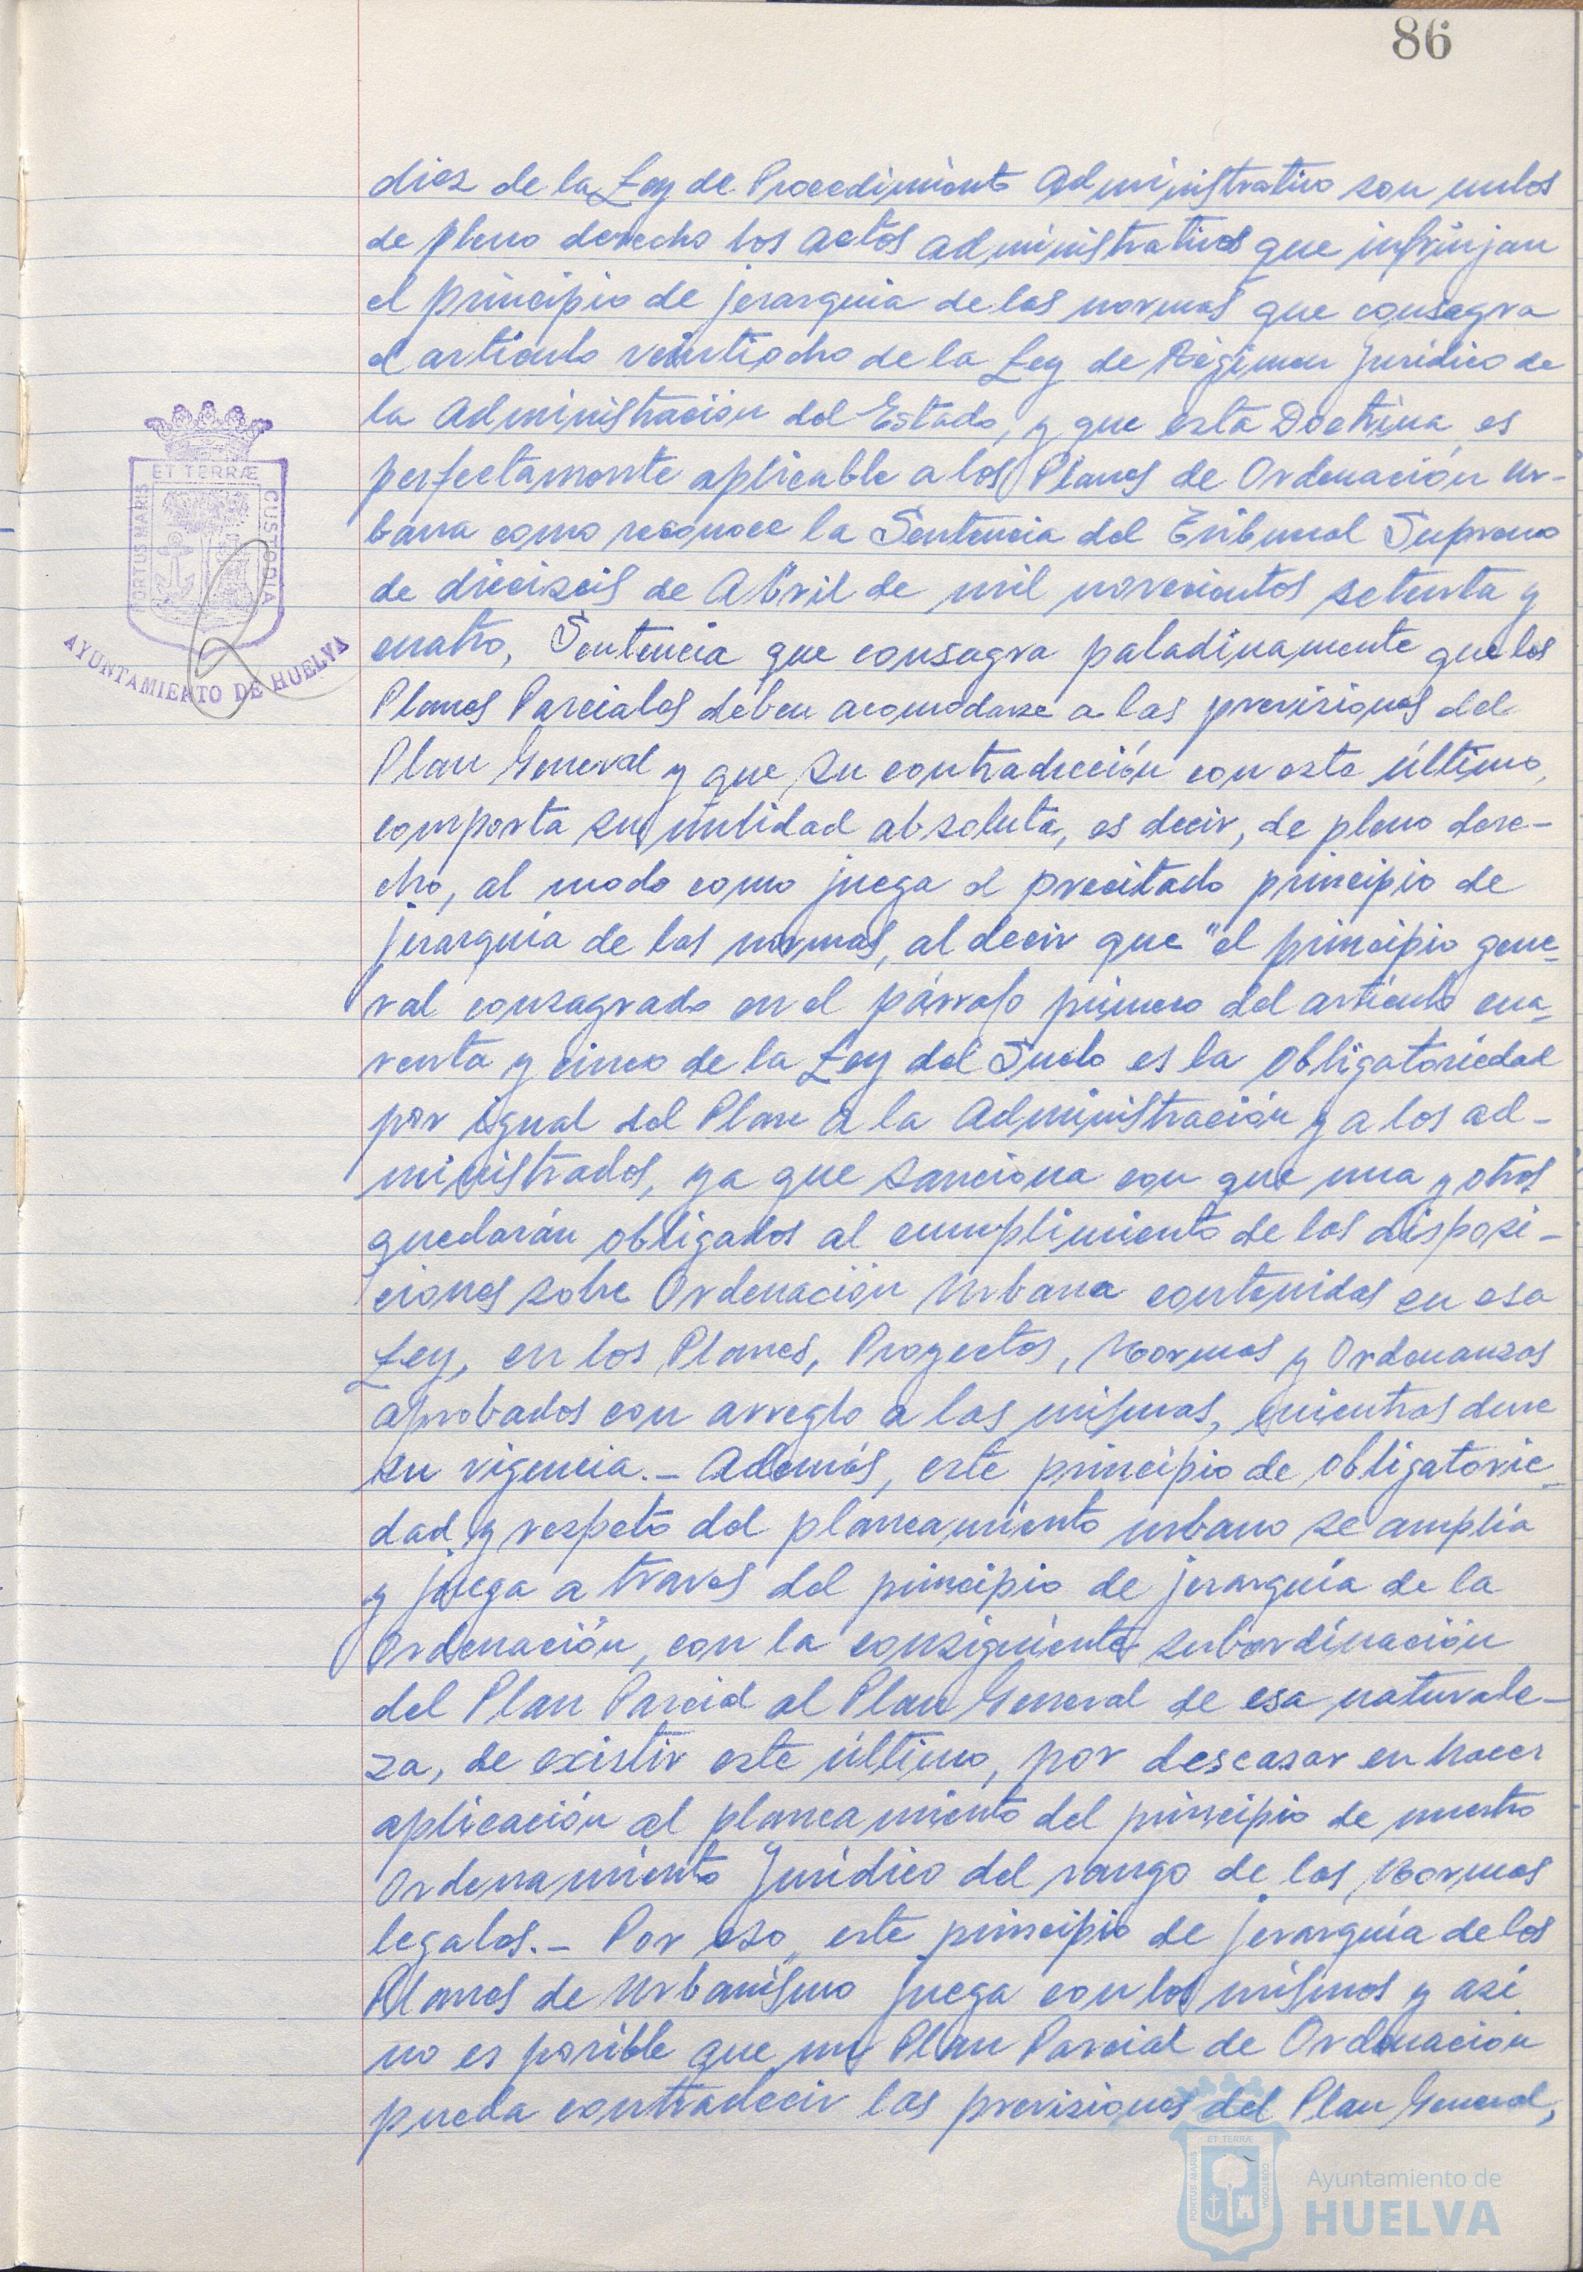 86
diez de la Ley de Procedimiento Administrativo son nulos
de pleno derecho los actos administrativos que infrinjan
el principio de jerarquia de las normas que consagra
el articulo veintiocho de la Ley de Régimen Jurídico de
la Administración del Estado, y que esta Doctrina es
perfectamente aplicable a los Planes de Ordenación Ur-
bana como reconoce la Sentencia del Tribunal Supremo
de dieciseis de Abril de mil novecientos setenta y
cuatro, Sentencia que consagra paladinamente que los
Planes Parciales deben acomodarse a las previsiones del
Plan General y que su contradicción con este último,
comporta su nulidad absoluta, es decir, de pleno dere-
cho, al modo como juega el precitado principio de
jerarquía de las normas, al decir que "el principio gene-
ral consagrado en el párrafo primero del artículo cua-
renta y cinco de la Ley del Suelo es la obligatoriedad
por igual del Plan a la Administración y a los ad-
ministrados, ya que sanciona con que una y otros
quedarán obligados al cumplimiento de las disposi-
ciones sobre Ordenación Urbana contenidas en esa
Ley, en los Planes, Proyectos, Normas y Ordenanzas
aprobados con arreglo a las mismas, mientras dure
su vigencia.- Además, este principio de obligatorie-
dad y respeto del planeamiento urbano se amplía
y juega a traves del principio de jerarquía de la
Ordenación, con la consiguiente subordinación
del Plan Parcial al Plan General de esa naturale-
za, de existir este último, por descasar en hacer
aplicación al planeamiento del principio de nuestro
Ordenamiento Jurídico del rango de las Normas
legales.- Por eso, este principio de jerarquía de los
Planes de Urbanismo juega con los mismos y así
no es posible que un Plan Parcial de Ordenación
pueda contradecir las previsiones del Plan General,
ET TERRÆ
PORTUS MARIS
CUSTODIA
AYUNTAMIENTO DE HUELVA
ET TERRÆ
PORTUS MARIS
CUSTODIA
Ayuntamiento de
HUELVA